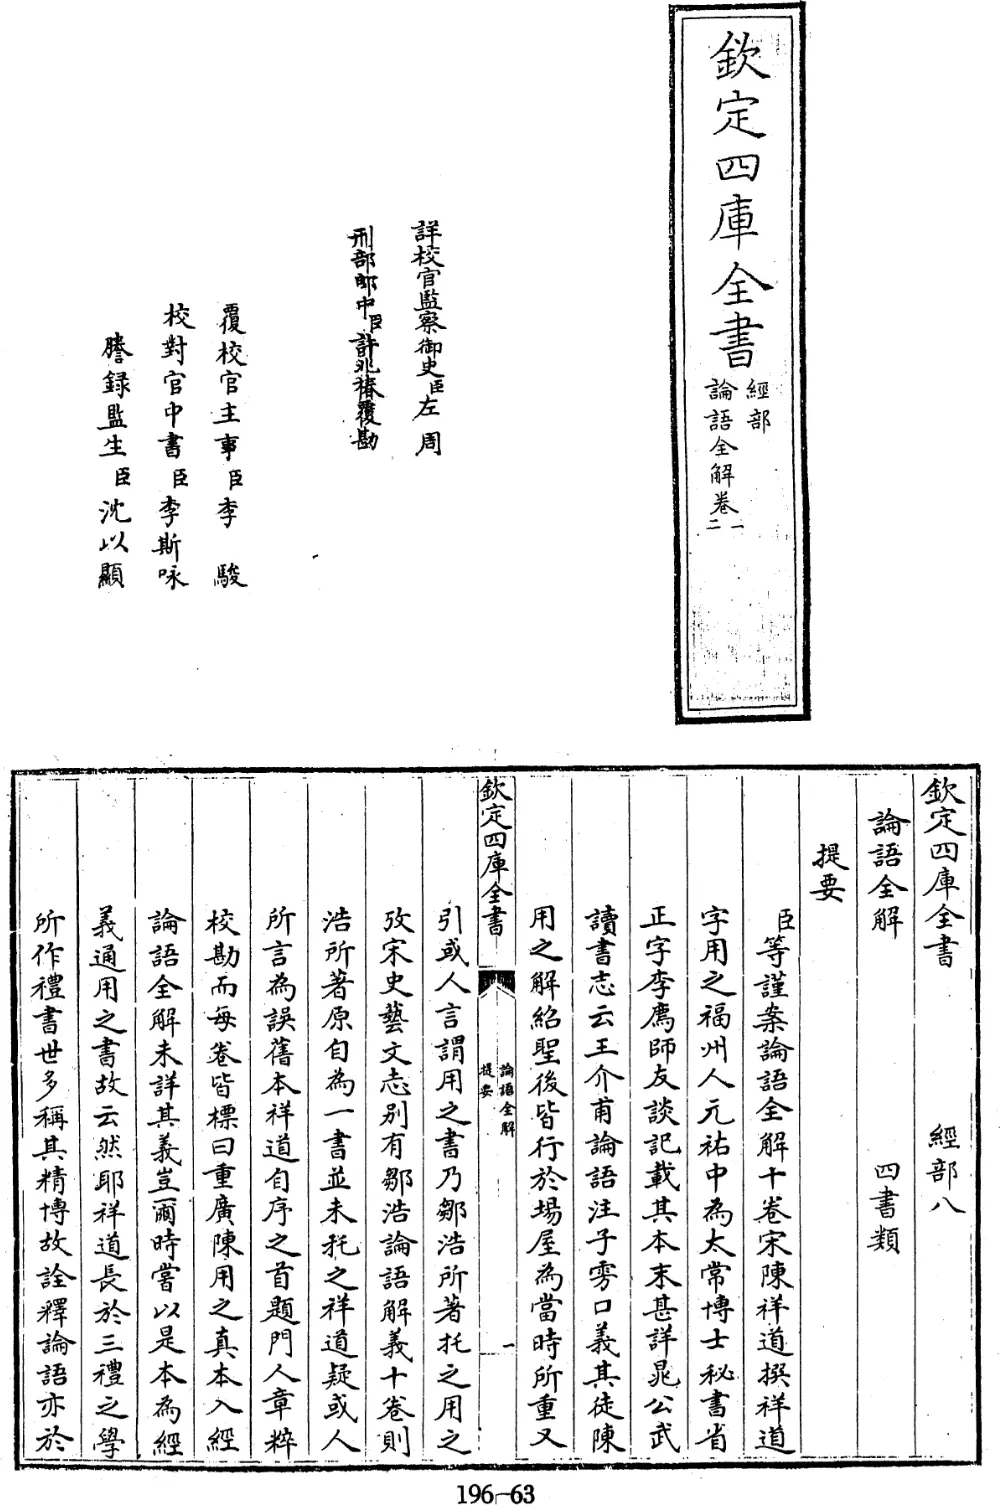 欽定四庫全書
經部
論語全解卷一
二
詳校官監察御史臣左周
刑部郎中臣許兆椿覆勘
覆校官主事臣李駿
校對官中書臣李斯咏
謄録監生臣沈以顯
欽定四庫全書 經部八
論語全解 四書類
提要
臣等謹案論語全解十卷宋陳祥道撰祥道
字用之福州人元祐中為太常博士秘書省
正字李廌師友談記載其本末甚詳晁公武
讀書志云王介甫論語注子雱口義其徒陳
用之解紹聖後皆行於場屋為當時所重又
欽定四庫全書
論語全解
提要
一
引或人言謂用之書乃鄒浩所著托之用之
攷宋史藝文志别有鄒浩論語解義十卷則
浩所著原自為一書並未托之祥道疑或人
所言為誤舊本祥道自序之首題門人章粹
校勘而每卷皆標曰重廣陳用之真本入經
論語全解未詳其義豈爾時嘗以是本為經
義通用之書故云然耶祥道長於三禮之學
所作禮書世多稱其精博故詮釋論語亦於
196-63